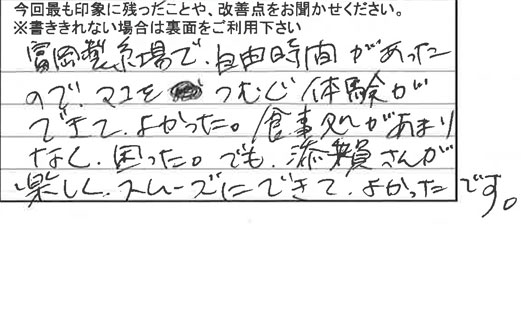 今回最も印象に残ったことや、改善点をお聞かせください。
※書ききれない場合は裏面をご利用下さい
富岡製糸場で、自由時間があった
ので、マユを つむぐ体験が
できて、よかった。食事処があまり
なく、困った。でも、添乗員さんが
楽しく、スムーズにできて、よかったです。